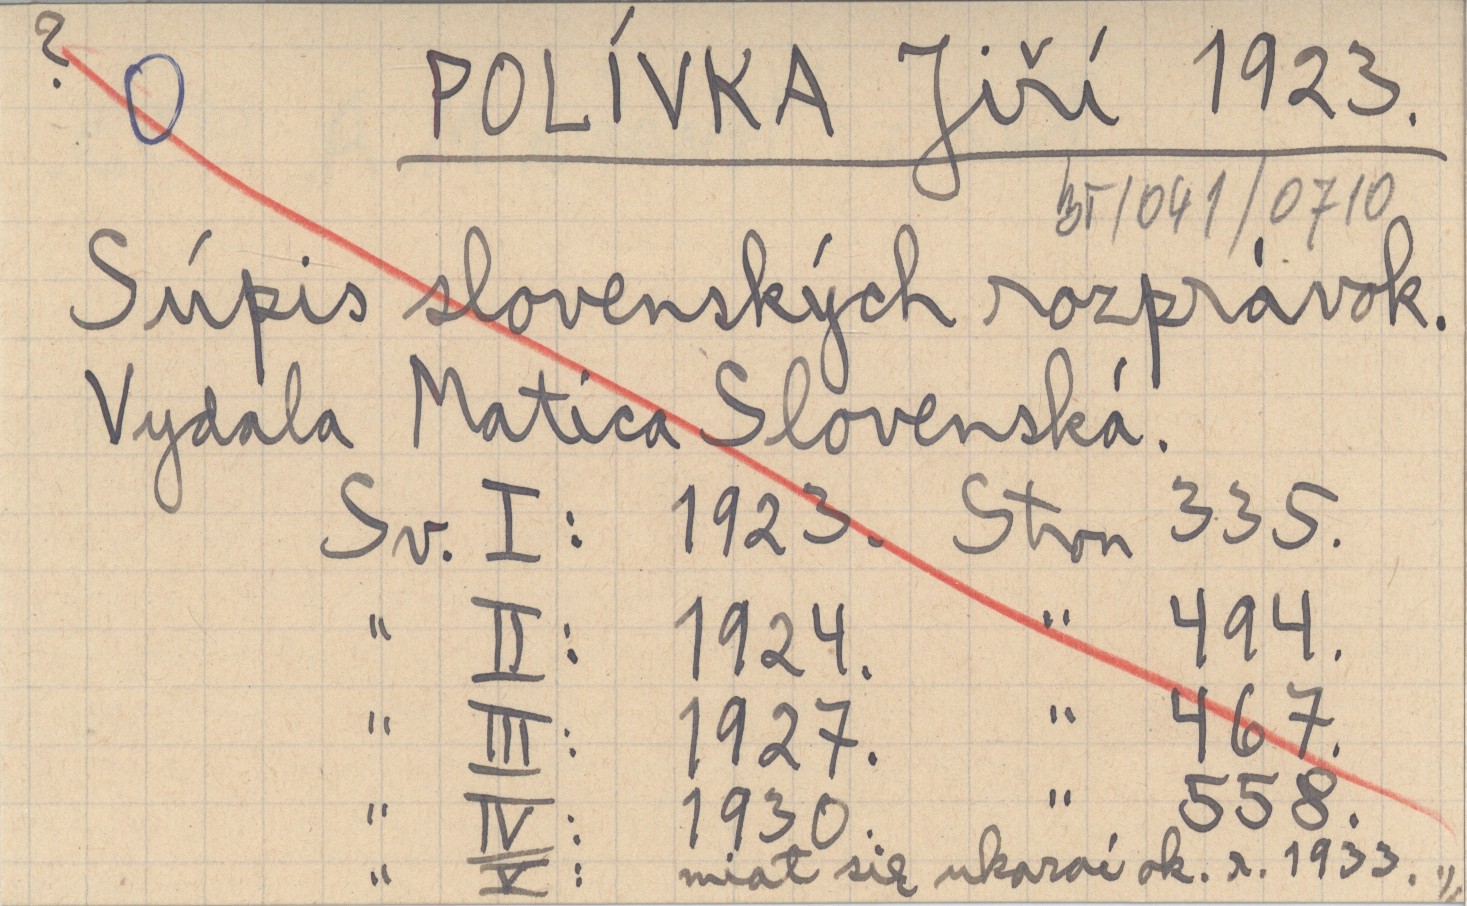 ? O POLÍVKA Jiří 1923.
/041/0710
Súpis slovenských rozprávok.
Vydala Matica Slovenská.
Sv. I: 1923. Stron 335.
" II: 1924. " 494.
" III: 1927. " 467.
" IV: 1930. " 558.
" V: miał się ukazać ok. r. 1933.